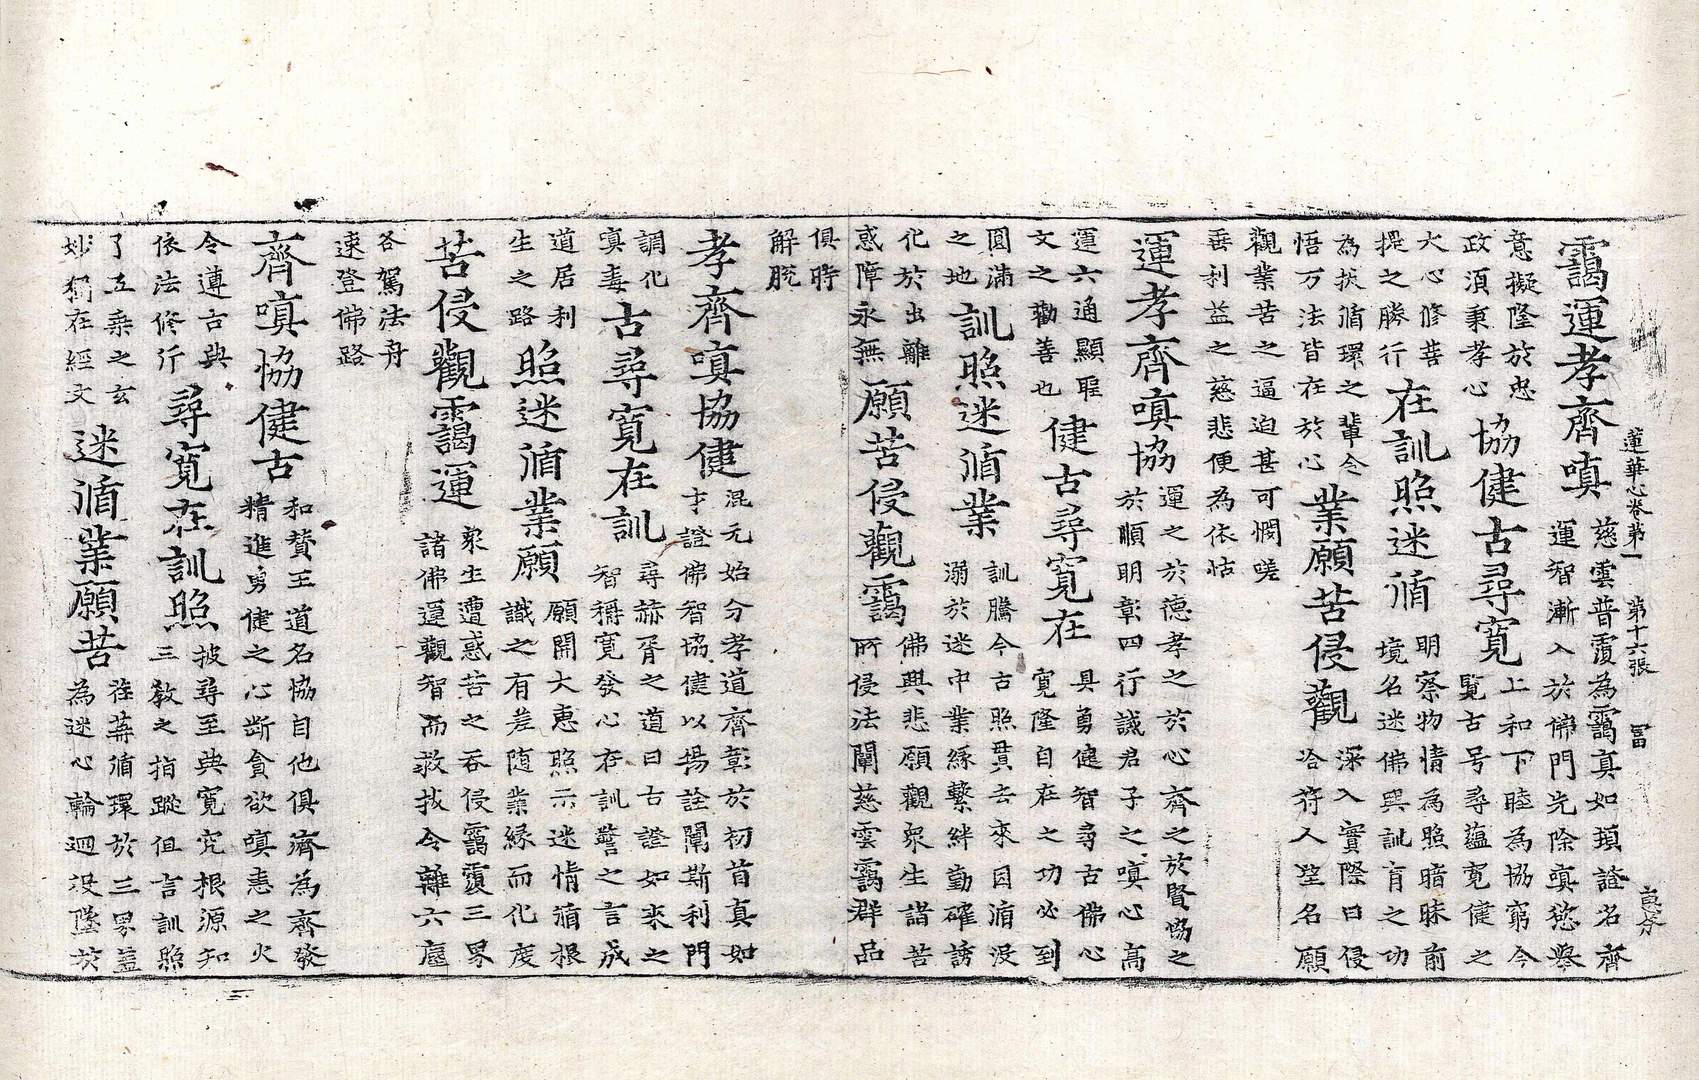 靄運孝齊嗔
慈雲普覆為靄真如頊證名齊
運智漸入於佛門先除嗔慾舉
意擬隆於忠
政須秉孝心
協健古尋寬
上和下睦為協窮今
覽古号尋蘊寬健之
大心修菩
提之勝行
在訓照迷循
明察物情為照暗昧前
境名迷佛興訓盲之功
為扶循環之輩令
悟万法皆在於心
業願苦侵觀
深入實際曰侵
洽符人望名願
觀業苦之逼迫甚可憫嗟
垂利益之慈悲便為依怙
運孝齊嗔協
運之於德孝之於心齊之於賢協之
於順明彰四行誡君子之嗔心高
運六通顯
文之勸善也
健古尋寬在
具勇健智尋古佛心
寬隆自在之功必到
圓滿
之地
訓照迷循業
訓騰今古照貫去來因循沒
溺於迷中業緣繫絆勤確誘
化於出離
惑障永無
願苦侵觀靄
佛興悲願觀衆生諸苦
所侵法闡慈雲靄群品
俱時
解脫
孝齊嗔協健
混元始分孝道齊彰於初首真如
才證佛智協健以揚詮闡斯利門
調化
寘毒
古尋寬在訓
尋赫胥之道曰古證如來之
智稱寬發心存訓誓之言成
道居利
生之路
照迷循業願
願開大惠照示迷情循根
識之有差随業緣而化度
苦侵觀靄運
衆生遭惑苦之吞侵靄覆三界
諸佛運觀智而救拔令離六塵
各駕法舟
速登佛路
齊嗔協健古
和贊王道名協自他俱濟為齊發
精進勇健之心斷貪欲嗔恚之火
令遵古典
依法修行
尋寬在訓照
披尋至典寬究根源知
三教之指蹤但言訓照
了五乘之玄
妙獨在經文
迷循業願苦
荏苒循環於三界蓋
為迷心輪迴沒墜於
蓮華心卷第一 第十六張